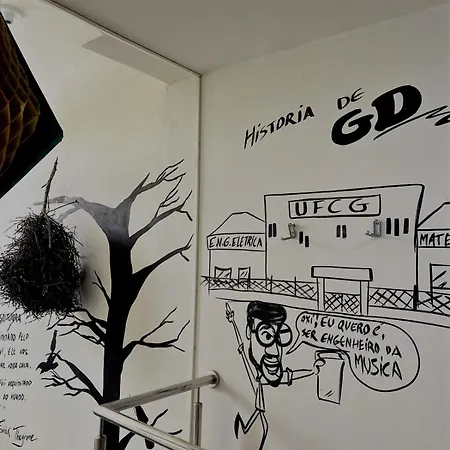 HISTORIA DE
GD
UFCG
ENG.ELETRICA
MATE
OXI, EU QUERO É,
SER ENGENHEIRO DA
MUSICA
PELO
ELE NOS
FOI
DO MUNDO.